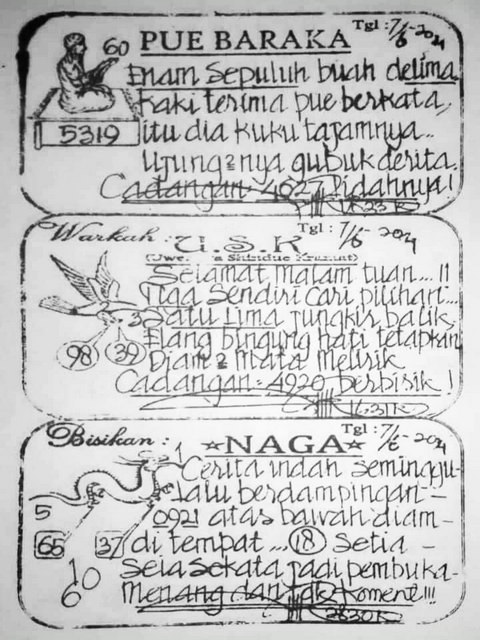 Tgl : 7/6-2021
60 PUE BARAKA
Enam Sepuluh buah delima
kaki terima pue berkata,
5319 itu dia kuku tajamnya...
Ujung2nya gubuk derita.
Cadangan 4627 Pidahnya!
Warkah : U.S.K Tgl : 7/6-2021
Selamat malam tuan...!!
Tiga Sendiri cari pilihan...
Satu Lima jungkir balik,
98 39 Elang bingung hati tetapkan
Diam2 Mata Melirik
Cadangan 4920 berbisik!
Bisikan : NAGA Tgl : 7/6-2021
Cerita indah seminggu
lalu berdampingan -
5 0921 atas bawah diam -
65 37 di tempat ... 18 Setia -
10 Seia Sekata jadi pembuka-
6 Menang dan Komene!!!